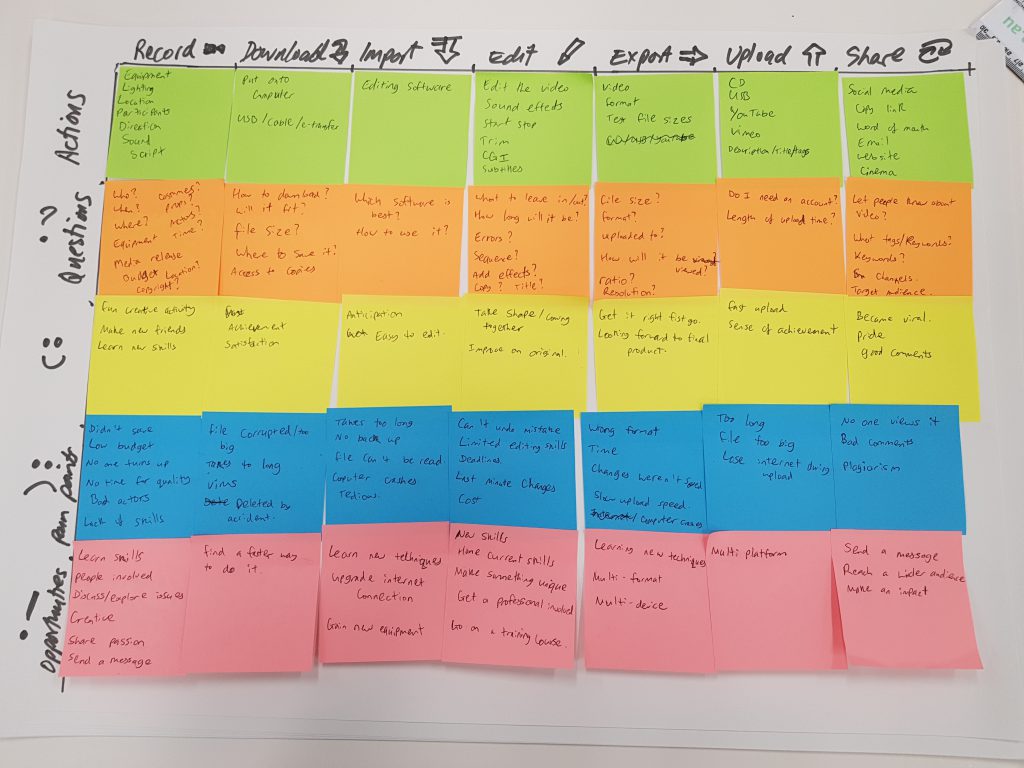 Record Download Import Edit Export Upload Share
Actions
Equipment
Lighting
Location
Participants
Direction
Sound
Script
Put onto
Computer
USB/Cable/e-transfer
Editing software
Edit the video
Sound effects
Start stop
Trim
CGI
Subtitles
Video
Format
Test file sizes
CD
USB
YouTube
Vimeo
Description/title/tags
Social media
Copy link
Word of mouth
Email
Website
Cinema
Questions
Who? Costumes?
When? Props?
Where? Actors?
Equipment Time?
Media release
Budget Location?
Copyright?
How to download?
Will it fit?
file size?
Where to save it?
Access to copies
Which software is
best?
How to use it?
What to leave in/out?
How long will it be?
Errors?
Sequence?
Add effects?
Copy? Title?
File size?
Format?
Uploaded to?
How will it be
viewed?
ratio?
Resolution?
Do I need an account?
Length of upload time?
Let people know about
video?
What tags/Keywords?
Keywords?
Channels.
Target audience.
C:
Fun creative activity
Make new friends
Learn new skills
Achievement
Satisfaction
Anticipation
Easy to edit.
Take Shape/Coming
together
Improve on original.
Get it right fist go.
Looking forward to final
product.
fast upload
Sense of achievement
Became viral.
Pride
Good comments
pain points
Didn't save
Low budget
No one turns up
No time for quality
Bad actors
Lack of skills
file Corrupted/too
big
Takes to long
Virus
Deleted by
accident.
Takes too long
No back up
file can't be read.
Computer crashes
Tedious.
Can't undo mistake
Limited editing skills
Deadlines.
Last minute Changes
Cost
Wrong format
Time
Changes weren't saved
Slow upload speed.
/Computer crashes
Too long
file too big
Lose internet during
upload
No one views it
Bad comments
Plagiarism
Opportunities
Learn skills
people involved
Discuss/explore issues
Creative
Share passion
Send a message
find a faster way
to do it.
Learn new techniques
Upgrade internet
Connection
Gain new equipment
New skills
Hone current skills
Make something unique
Get a professional involved
Go on a training course.
Learning new techniques
Multi-format
Multi-device
Multi platform
Send a message
Reach a wider audience
Make an impact